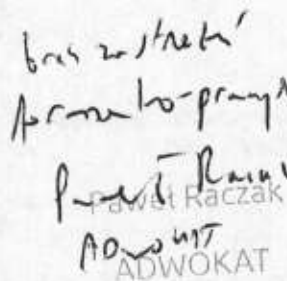 bez zastrzeżeń
formalno-prawnych
Paweł Raczak
Paweł Raczak
ADWOKAT
ADWOKAT